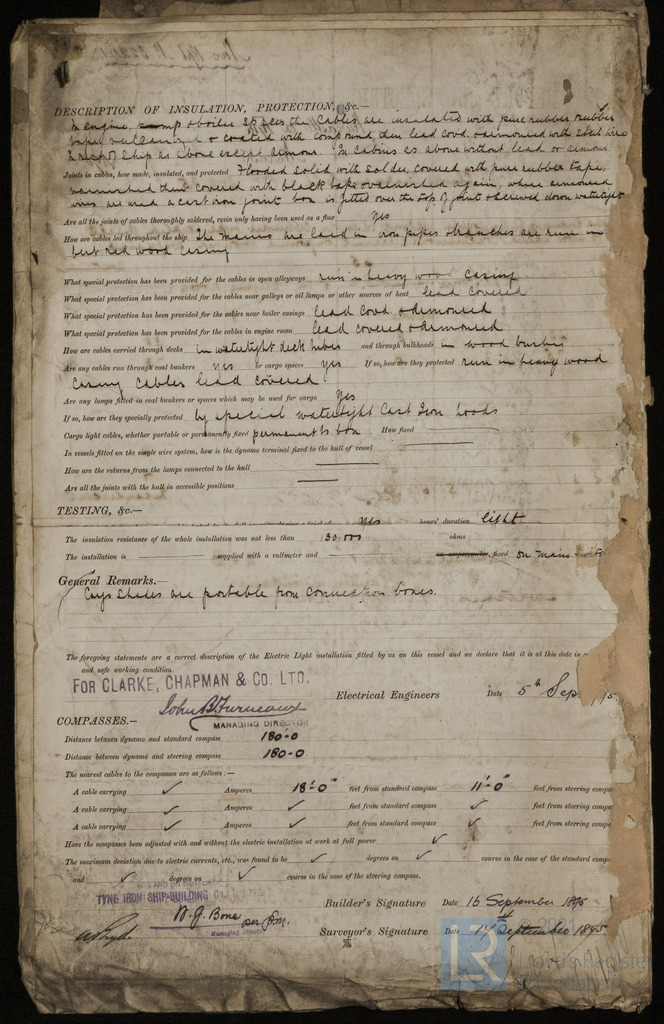 DESCRIPTION OF INSULATION, PROTECTION, &c.—
In engine, & boiler spaces the cables are insulated with pure rubber rubber
& coated with compound, then lead covd. & armoured with steel wire
rest of ship as above except armour. In cabins as above without lead or armour
Joints in cables, how made, insulated, and protected Flooded solid with solder, covered with pure rubber tape,
varnished then covered with black tape & varnished again, where armoured
wires are used a cast iron joint box is fitted over the top of joint & screwed down watertight
Are all the joints of cables thoroughly soldered, resin only having been used as a flux yes
How are cables led throughout the ship The mains are laid in iron pipes & branches are run in
best red wood casing
What special protection has been provided for the cables in open alleyways run in heavy wood casing
What special protection has been provided for the cables near galleys or oil lamps or other sources of heat lead covered
What special protection has been provided for the cables near boiler casings lead covd. & armoured
What special protection has been provided for the cables in engine room lead covered & armoured
How are cables carried through decks in watertight deck tubes and through bulkheads in wood bushes
Are any cables run through coal bunkers yes or cargo spaces yes If so, how are they protected run in heavy wood
casing cables lead covered
Are any lamps fitted in coal bunkers or spaces which may be used for cargo Yes
If so, how are they specially protected by special watertight Cast Iron hoods
Cargo light cables, whether portable or permanently fixed permanent to box How fixed
In vessels fitted on the single wire system, how is the dynamo terminal fixed to the hull of vessel
How are the returns from the lamps connected to the hull
Are all the joints with the hull in accessible positions
TESTING, &c.—
yes hours' duration light
The insulation resistance of the whole installation was not less than 150,000 ohms
The installation is supplied with a voltmeter and an amperemeter, fixed on main
General Remarks.—
Cargo Shades are portable from connection boxes.
The foregoing statements are a correct description of the Electric Light installation fitted by us on this vessel and we declare that it is at this date in
and safe working condition.
FOR CLARKE, CHAPMAN & Co. LTD.
Electrical Engineers Date 5th Sep
John B Furneaux
MANAGING DIRECTOR
COMPASSES.—
Distance between dynamo and standard compass 180'-0
Distance between dynamo and steering compass 180-0
The nearest cables to the compasses are as follows:—
A cable carrying ✓ Amperes 18'-0" feet from standard compass 11'-0" feet from steering
A cable carrying ✓ Amperes ✓ feet from standard compass ✓ feet from steering
A cable carrying ✓ Amperes ✓ feet from standard compass ✓ feet from steering
Have the compasses been adjusted with and without the electric installation at work at full power ✓
The maximum deviation due to electric currents, etc., was found to be ✓ degrees on ✓ course in the case of the standard
and ✓ degrees on ✓ course in the case of the steering compass.
TYNE IRON SHIP-BUILDING Co., LIMITED
Builder's Signature Date 16 September 1895
B. G. Bone
Managing Director
Surveyor's Signature Date 17th September 1895.
LR
Lloyd's Register
Foundation